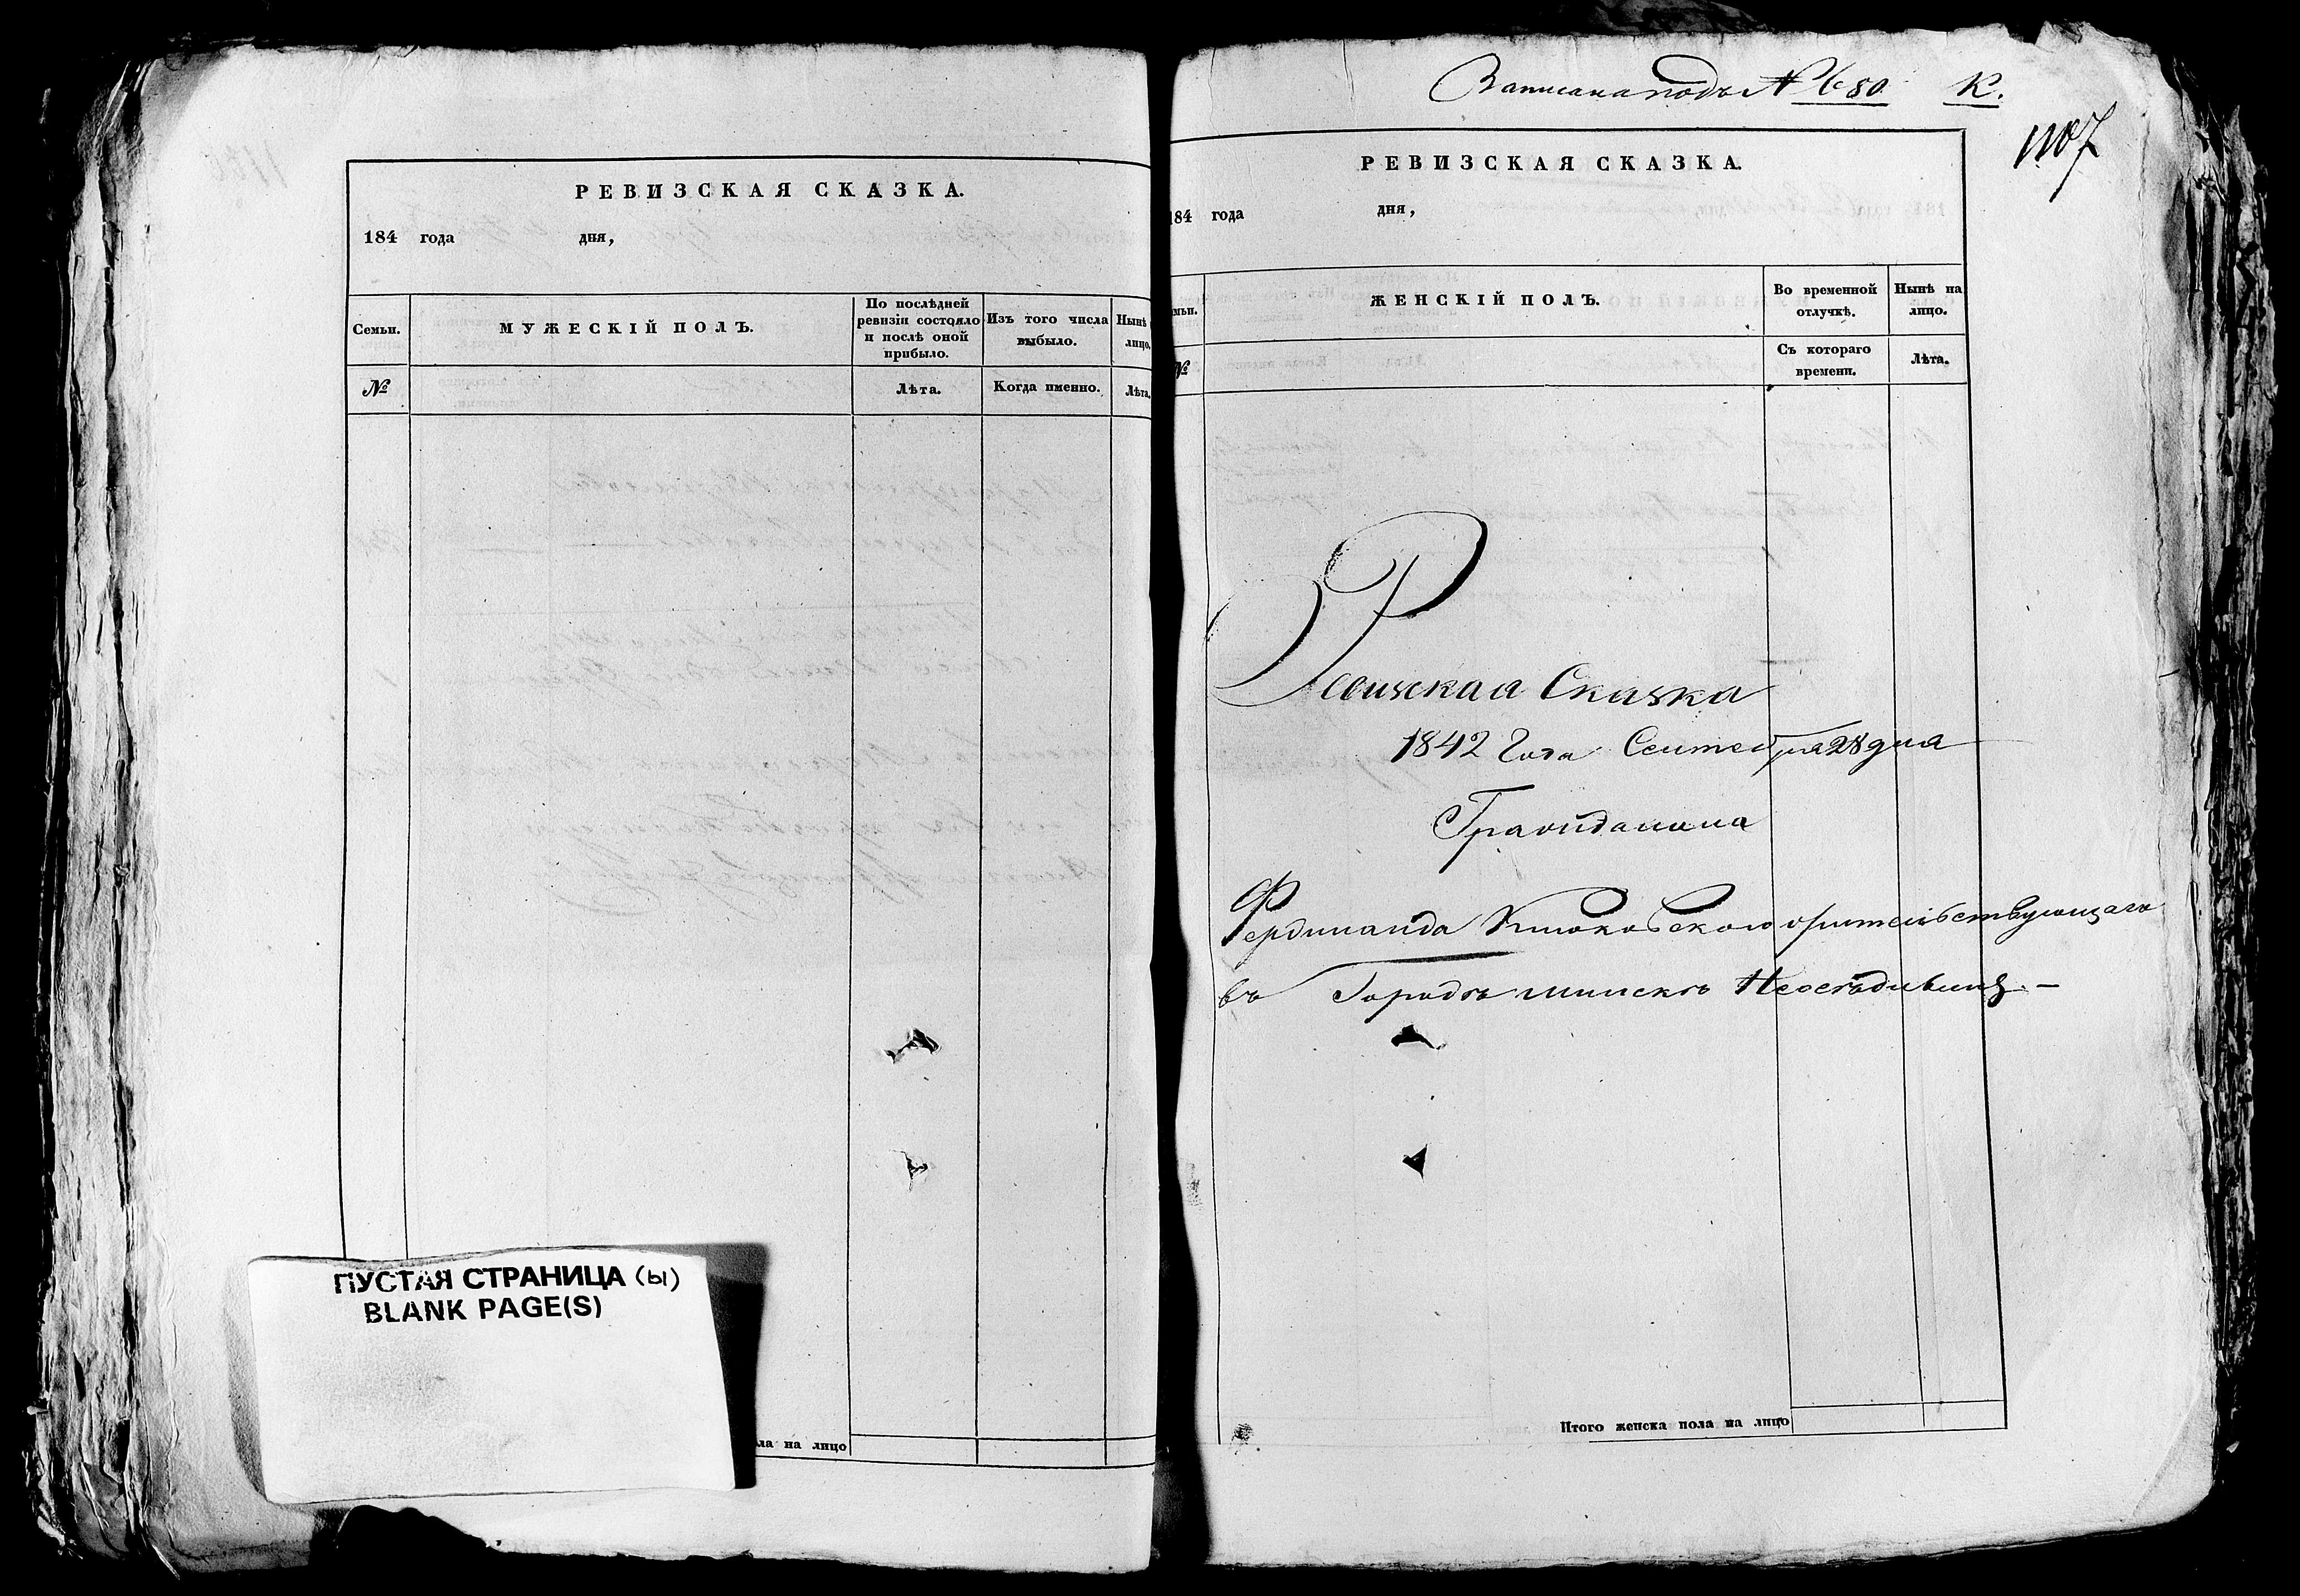 РЕВИЗСКАЯ СКАЗКА.
184 года дня,
Семьи.
МУЖЕСКІЙ ПОЛЪ.
По послѣдней
ревизіи состояло
и послѣ оной
прибыло.
Изъ того числа
выбыло.
Нынѣ
лицо.
№
Лѣта.
Когда именно.
Лѣта.
ПУСТАЯ СТРАНИЦА (Ы)
BLANK PAGE(S)
ла на лицо
Записана подъ № 680 К.
1107
РЕВИЗСКАЯ СКАЗКА.
184 года дня,
мьи.
ЖЕНСКІЙ ПОЛЪ.
Во временной
отлучкѣ.
Нынѣ на
лицо.
№
Съ котораго
времени.
Лѣта.
Ревизская Сказка
1842 Года Сентебря 28 дня
Гражданина
Фердинанда жительствующаго
въ Городѣ минскѣ
Итого женска пола на лицо